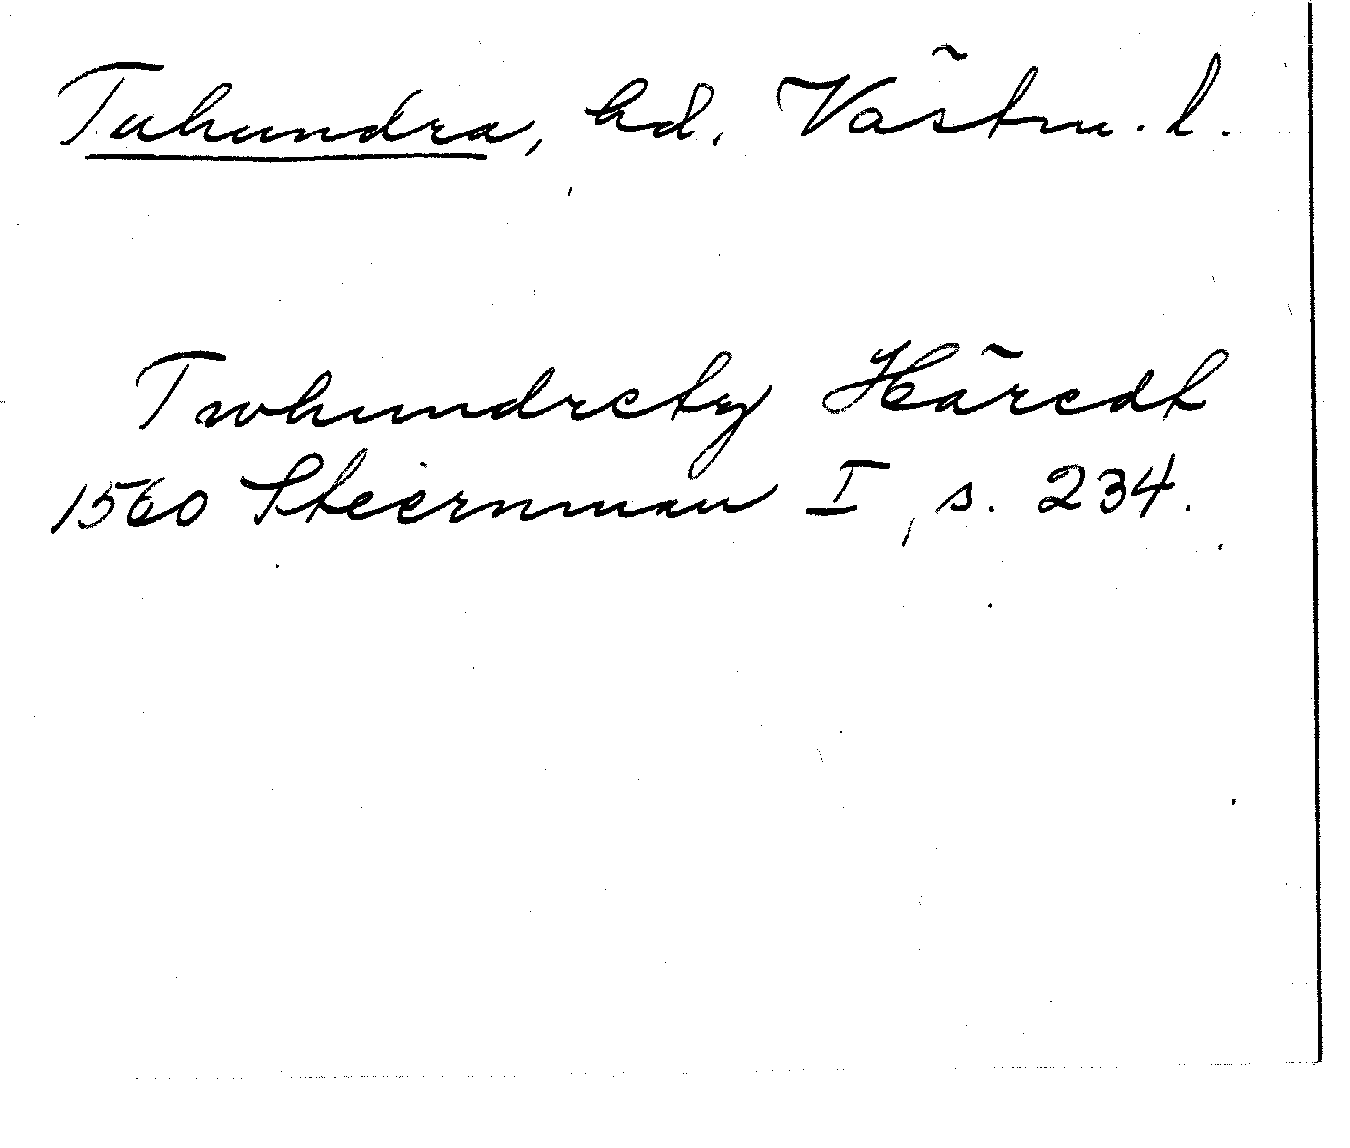 Tuhundra, hd. Västm. l.
Twhundrety Häredt
1560 Stiernman I, s. 234.